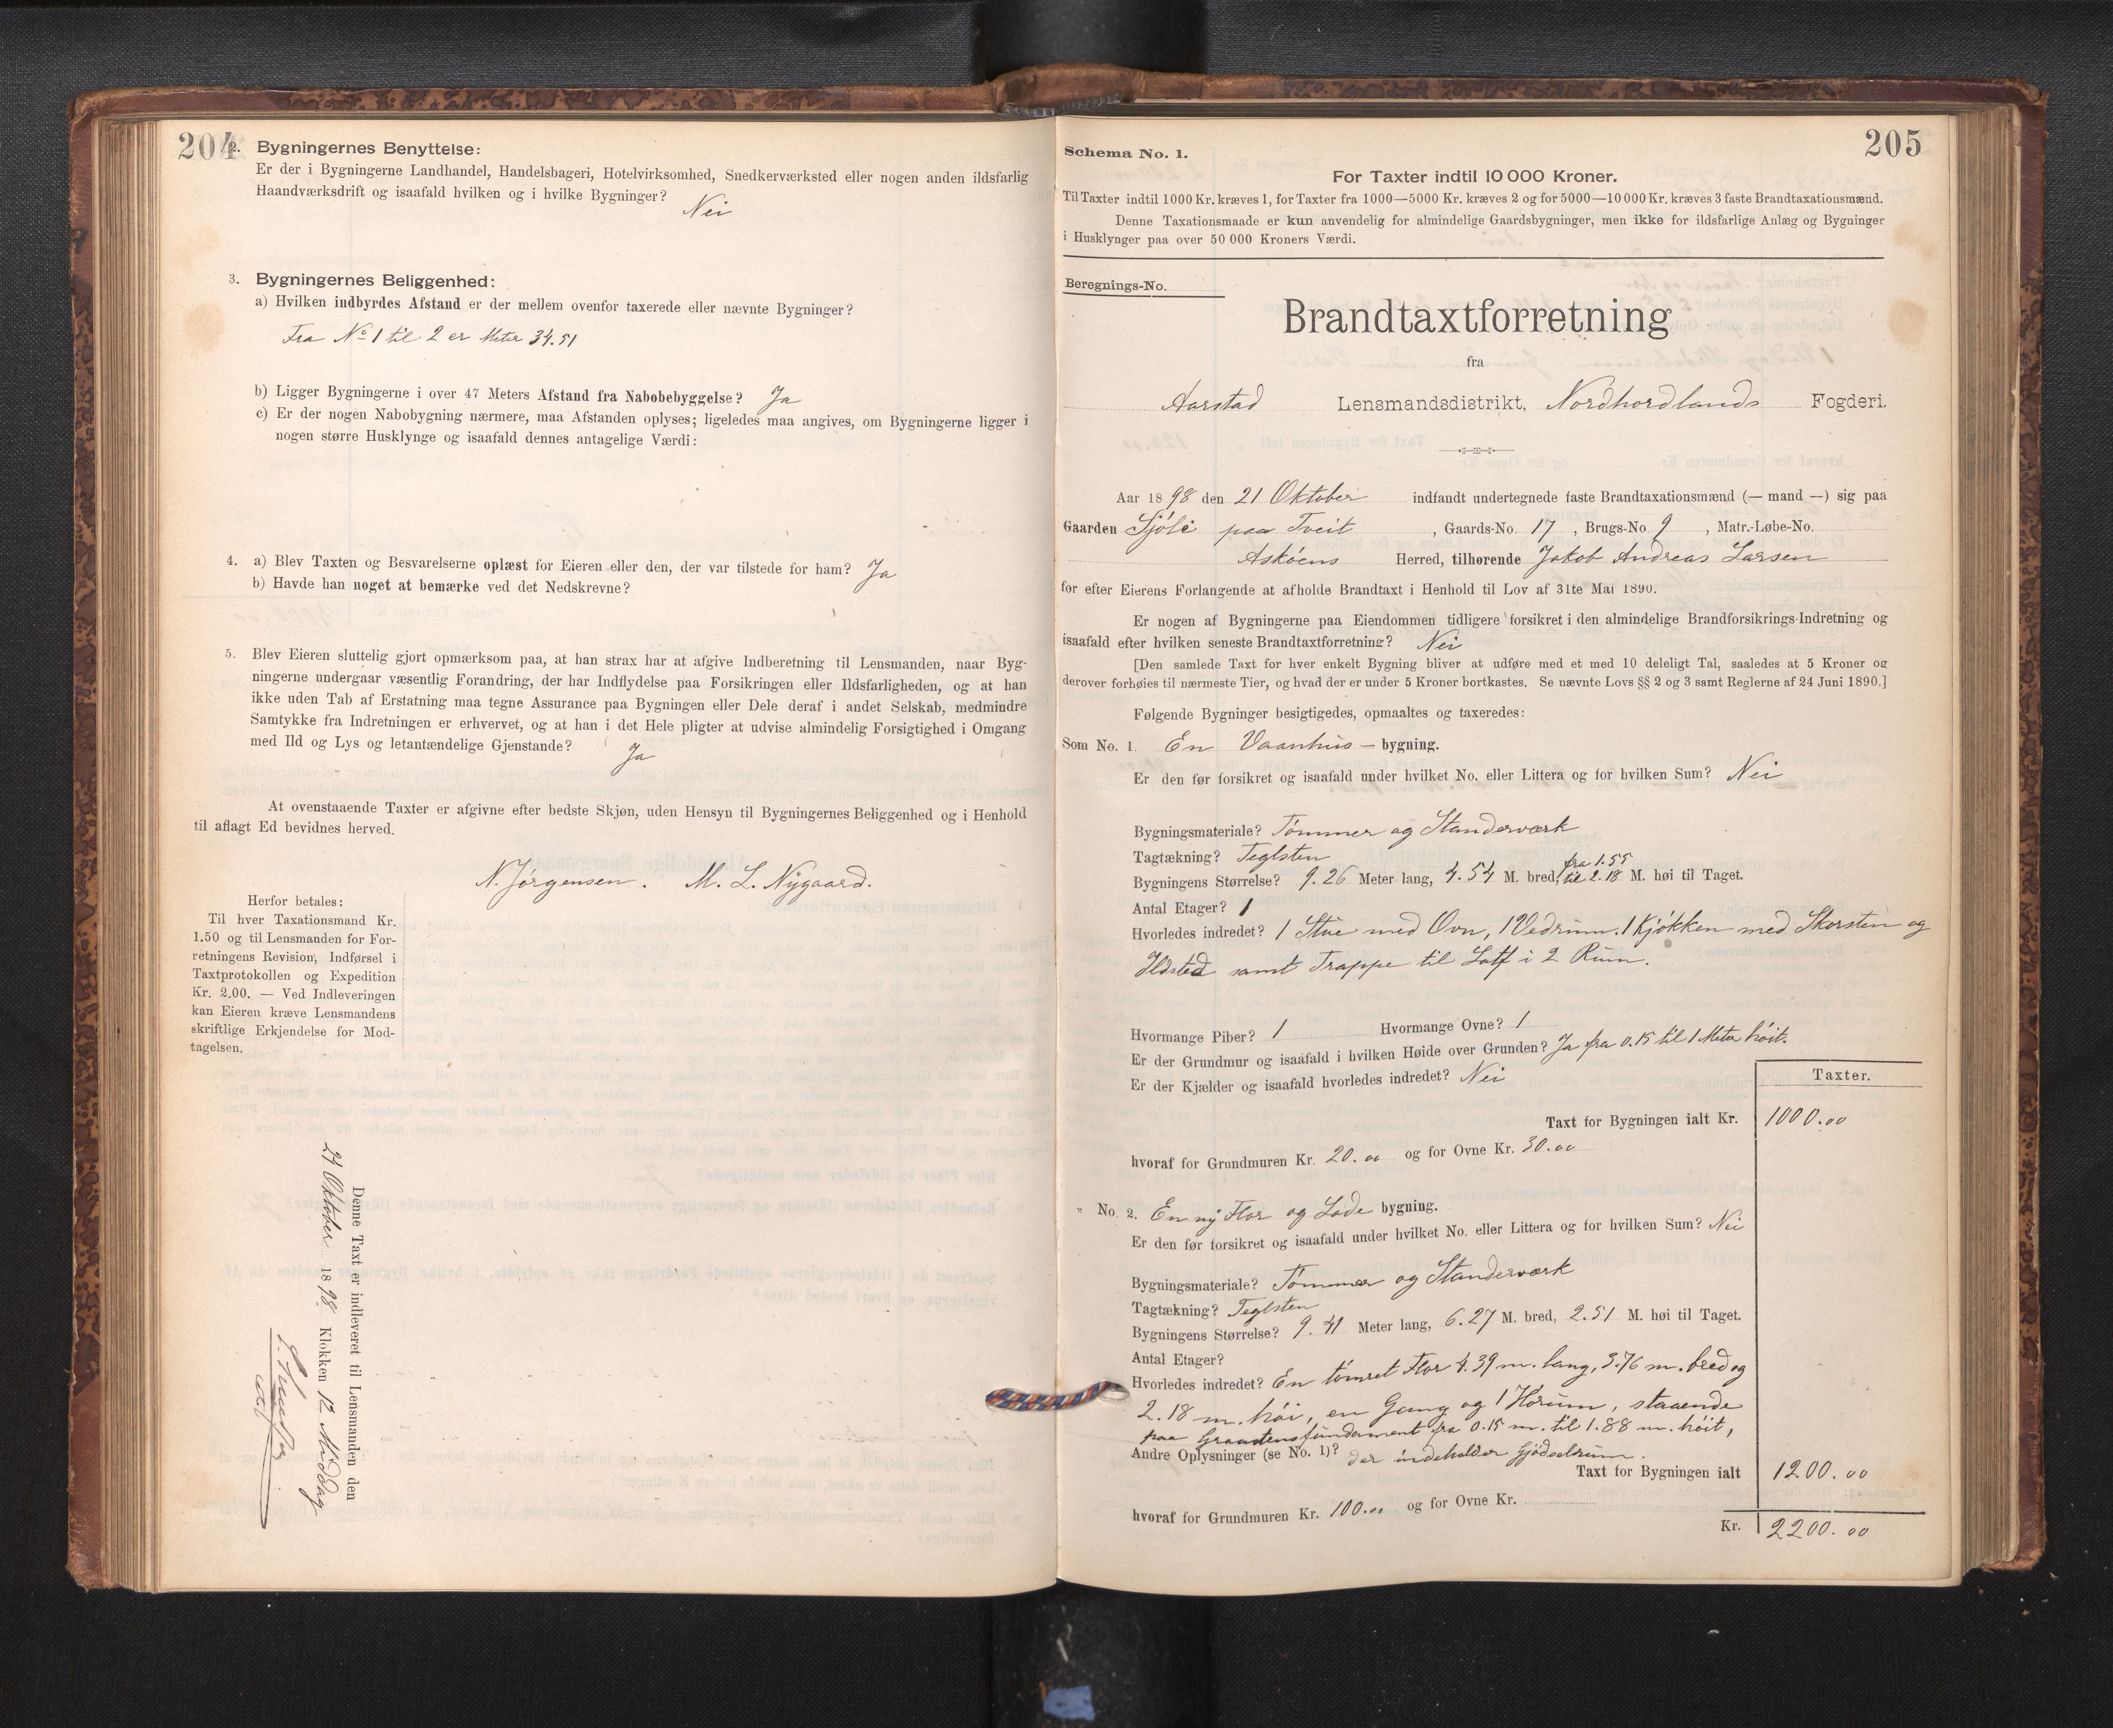 204
2. Bygningernes Benyttelse:
Er der i Bygningerne Landhandel, Handelsbageri, Hotelvirksomhed, Snedkerværksted eller nogen anden ildsfarlig
Haandværksdrift og isaafald hvilken og i hvilke Bygninger?
Nei
3. Bygningernes Beliggenhed:
a) Hvilken indbyrdes Afstand er der mellem ovenfor taxerede eller nævnte Bygninger?
Fra No 1 til 2 er Meter 34.51
b) Ligger Bygningerne i over 47 Meters Afstand fra Nabobebyggelse? Ja
c) Er der nogen Nabobygning nærmere, maa Afstanden oplyses; ligeledes maa angives, om Bygningerne ligger i
nogen større Husklynge og isaafald dennes antagelige Værdi:
4. a) Blev Taxten og Besvarelserne oplæst for Eieren eller den, der var tilstede for ham? Ja
b) Havde han noget at bemærke ved det Nedskrevne?
5. Blev Eieren sluttelig gjort opmærksom paa, at han strax har at afgive Indberetning til Lensmanden, naar Byg-
ningerne undergaar væsentlig Forandring, der har Indflydelse paa Forsikringen eller Ildsfarligheden, og at han
ikke uden Tab af Erstatning maa tegne Assurance paa Bygningen eller Dele deraf i andet Selskab, medmindre
Samtykke fra Indretningen er erhvervet, og at han i det Hele pligter at udvise almindelig Forsigtighed i Omgang
med Ild og Lys og letantændelige Gjenstande? Ja
At ovenstaaende Taxter er afgivne efter bedste Skjøn, uden Hensyn til Bygningernes Beliggenhed og i Henhold
til aflagt Ed bevidnes herved.
N. Jørgensen. M. L. Nygaard.
Herfor betales:
Til hver Taxationsmand Kr.
1.50 og til Lensmanden for For-
retningens Revision, Indførsel i
Taxtprotokollen og Expedition
Kr. 2.00. — Ved Indleveringen
kan Eieren kræve Lensmandens
skriftlige Erkjendelse for Mod-
tagelsen.
Denne Taxt er indleveret til Lensmanden den
24 Oktober 1898 Klokken 12 Middag
205
Schema No. 1.
For Taxter indtil 10 000 Kroner.
Til Taxter indtil 1000 Kr. kræves 1, for Taxter fra 1000—5000 Kr. kræves 2 og for 5000—10000 Kr. kræves 3 faste Brandtaxationsmænd.
Denne Taxationsmaade er kun anvendelig for almindelige Gaardsbygninger, men ikke for ildsfarlige Anlæg og Bygninger
i Husklynger paa over 50 000 Kroners Værdi.
Beregnings-No.
Brandtaxtforretning
fra
Aarstad Lensmandsdistrikt, Nordhordlands Fogderi.
Aar 1898 den 21 Oktober indfandt undertegnede faste Brandtaxationsmænd (— mand —) sig paa
Gaarden Sjóli paa Tveit, Gaards-No. 17, Brugs-No 9, Matr.-Løbe-No.
Askóens Herred, tilhørende Jakob Andreas Larsen
for efter Eierens Forlangende at afholde Brandtaxt i Henhold til Lov af 31te Mai 1890.
Er nogen af Bygningerne paa Eiendommen tidligere forsikret i den almindelige Brandforsikrings-Indretning og
isaafald efter hvilken seneste Brandtaxtforretning? Nei
[Den samlede Taxt for hver enkelt Bygning bliver at udføre med et med 10 deleligt Tal, saaledes at 5 Kroner og
derover forhøies til nærmeste Tier, og hvad der er under 5 Kroner bortkastes. Se nævnte Lovs §§ 2 og 3 samt Reglerne af 24 Juni 1890.]
Følgende Bygninger besigtigedes, opmaaltes og taxeredes:
Som No. 1. En Vaanhus-bygning.
Er den før forsikret og isaafald under hvilket No. eller Littera og for hvilken Sum? Nei
Bygningsmateriale? Tömmer og Standerværk
Tagtækning? Teglsten
Bygningens Størrelse? 9.26 Meter lang, 4.54 M. bred, fra 1.55 til 2.18 M. høi til Taget.
Antal Etager? 1
Hvorledes indredet? 1 Stue med Ovn, 1 Vedrum. 1 Kjökken med Skorsten og
Ildsted samt Trappe til Loft i 2 Rum.
Hvormange Piber? 1 Hvormange Ovne? 1
Er der Grundmur og isaafald i hvilken Høide over Grunden? Ja fra 0.15 til 1 Meter hóit.
Er der Kjælder og isaafald hvorledes indredet? Nei
Taxter.
Taxt for Bygningen ialt Kr. 1000.00
hvoraf for Grundmuren Kr. 20.00 og for Ovne Kr. 30.00
" No. 2. En ny Flor og Lade bygning.
Er den før forsikret og isaafald under hvilket No. eller Littera og for hvilken Sum? Nei
Bygningsmateriale? Tömmer og Standerværk
Tagtækning? Teglsten
Bygningens Størrelse? 9.41 Meter lang, 6.27 M. bred, 2.51 M. høi til Taget.
Antal Etager?
Hvorledes indredet? En tömret Flor 4.39 m. lang, 3.76 m. bred og
2.18 m. hói, en Gang og 1 Hórum, staaende
paa Graastensfundament fra 0.15 m. til 1.88 m. hóit,
Andre Oplysninger (se No. 1)? der indeholder Gjödselrum.
Taxt for Bygningen ialt 1200.00
hvoraf for Grundmuren Kr. 100.00 og for Ovne Kr.
Kr. 2200.00